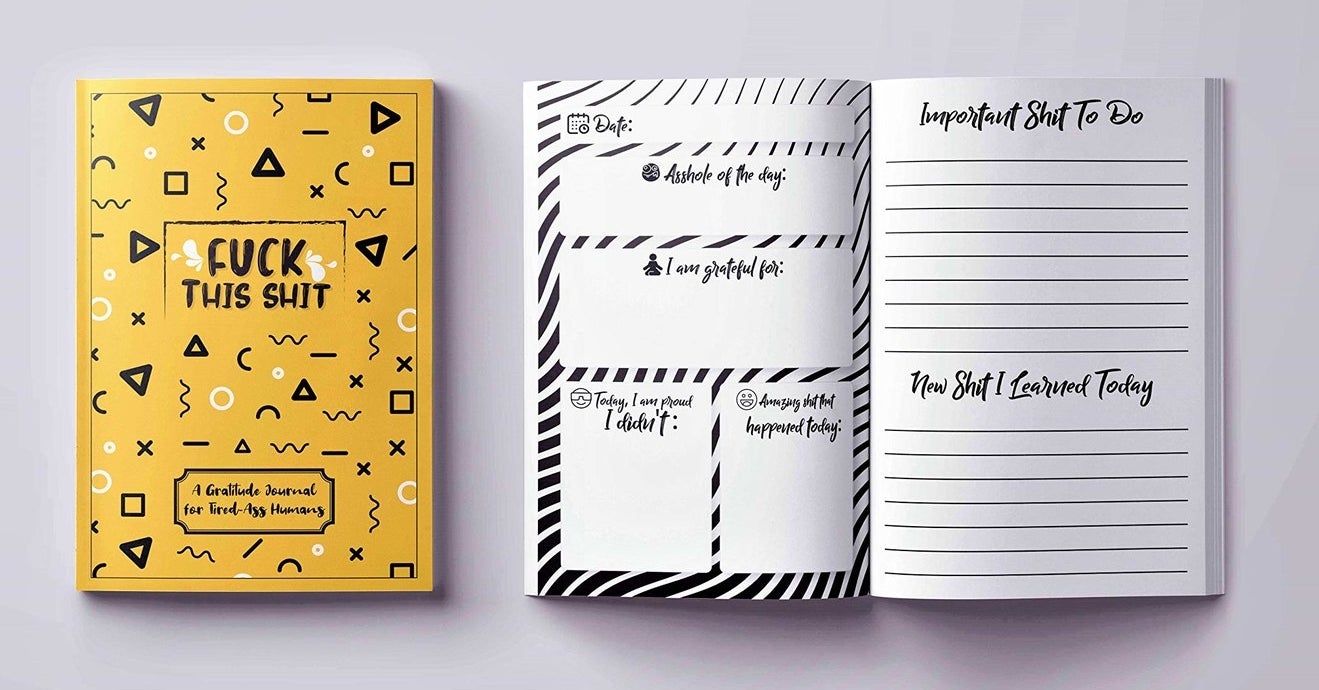 FUCK
THIS SHIT
A Gratitude Journal
for Tired-Ass Humans
Date:
Asshole of the day:
I am grateful for:
Today, I am proud
I didn't:
Amazing shit that
happened today:
Important Shit To Do
New Shit I Learned Today